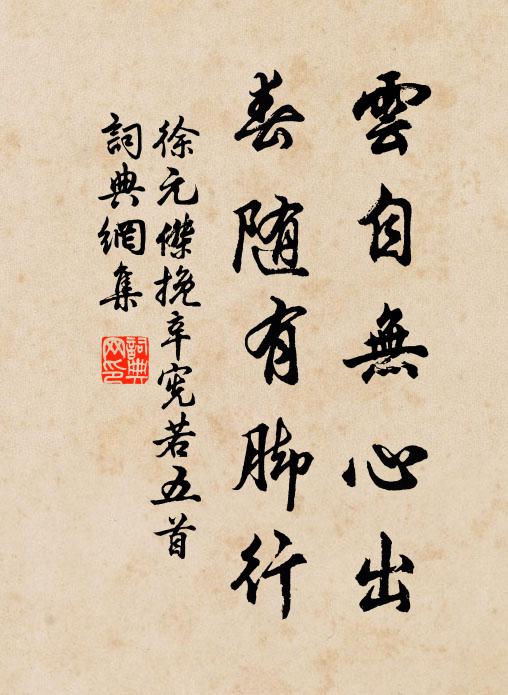 雲自無心出
春隨有脚行
徐元傑挽辛宪若五首
詞典網集
詞典網印